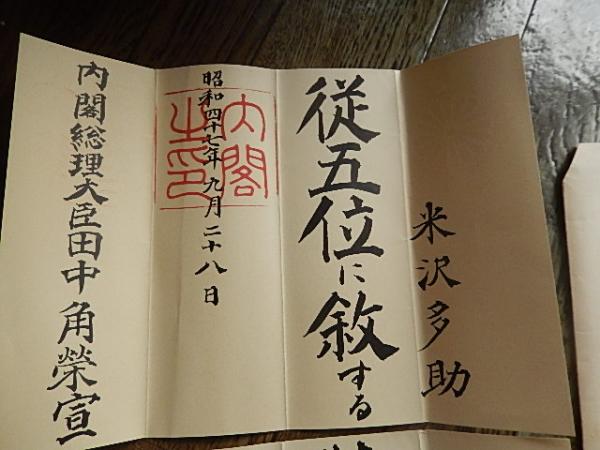 米沢多助
従五位に敘する
昭和四十七年九月二十八日
内閣之印
内閣総理大臣田中角榮宣